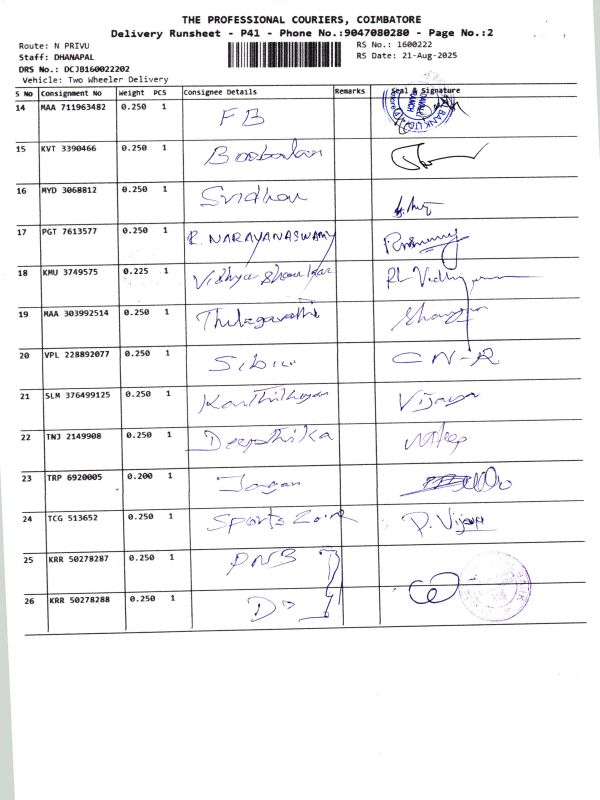 THE PROFESSIONAL COURIERS, COIMBATORE
Delivery Runsheet - P41 - Phone No.:9047080280 - Page No.:2
Route: N PRIVU RS No.: 1600222
Staff: DHANAPAL RS Date: 21-Aug-2025
DRS No.: DCJB160022202
Vehicle: Two Wheeler Delivery
S No Consignment No Weight PCS Consignee Details Remarks Seal & Signature
14 MAA 711963482 0.250 1 FB BANK LTD
15 KVT 3390466 0.250 1
16 MYD 3068812 0.250 1 Sridhar
17 PGT 7613577 0.250 1 R. NARAYANASWAMY
18 KMU 3749575 0.225 1 Vidhya Shankar
19 MAA 303992514 0.250 1
20 VPL 228892077 0.250 1 CN-R
21 SLM 376499125 0.250 1 Vijaya
22 TNJ 2149908 0.250 1 Deepthika
23 TRP 6920005 0.200 1 Jagan
24 TCG 513652 0.250 1 Sports Zone
25 KRR 50278287 0.250 1 PNB
26 KRR 50278288 0.250 1 Do